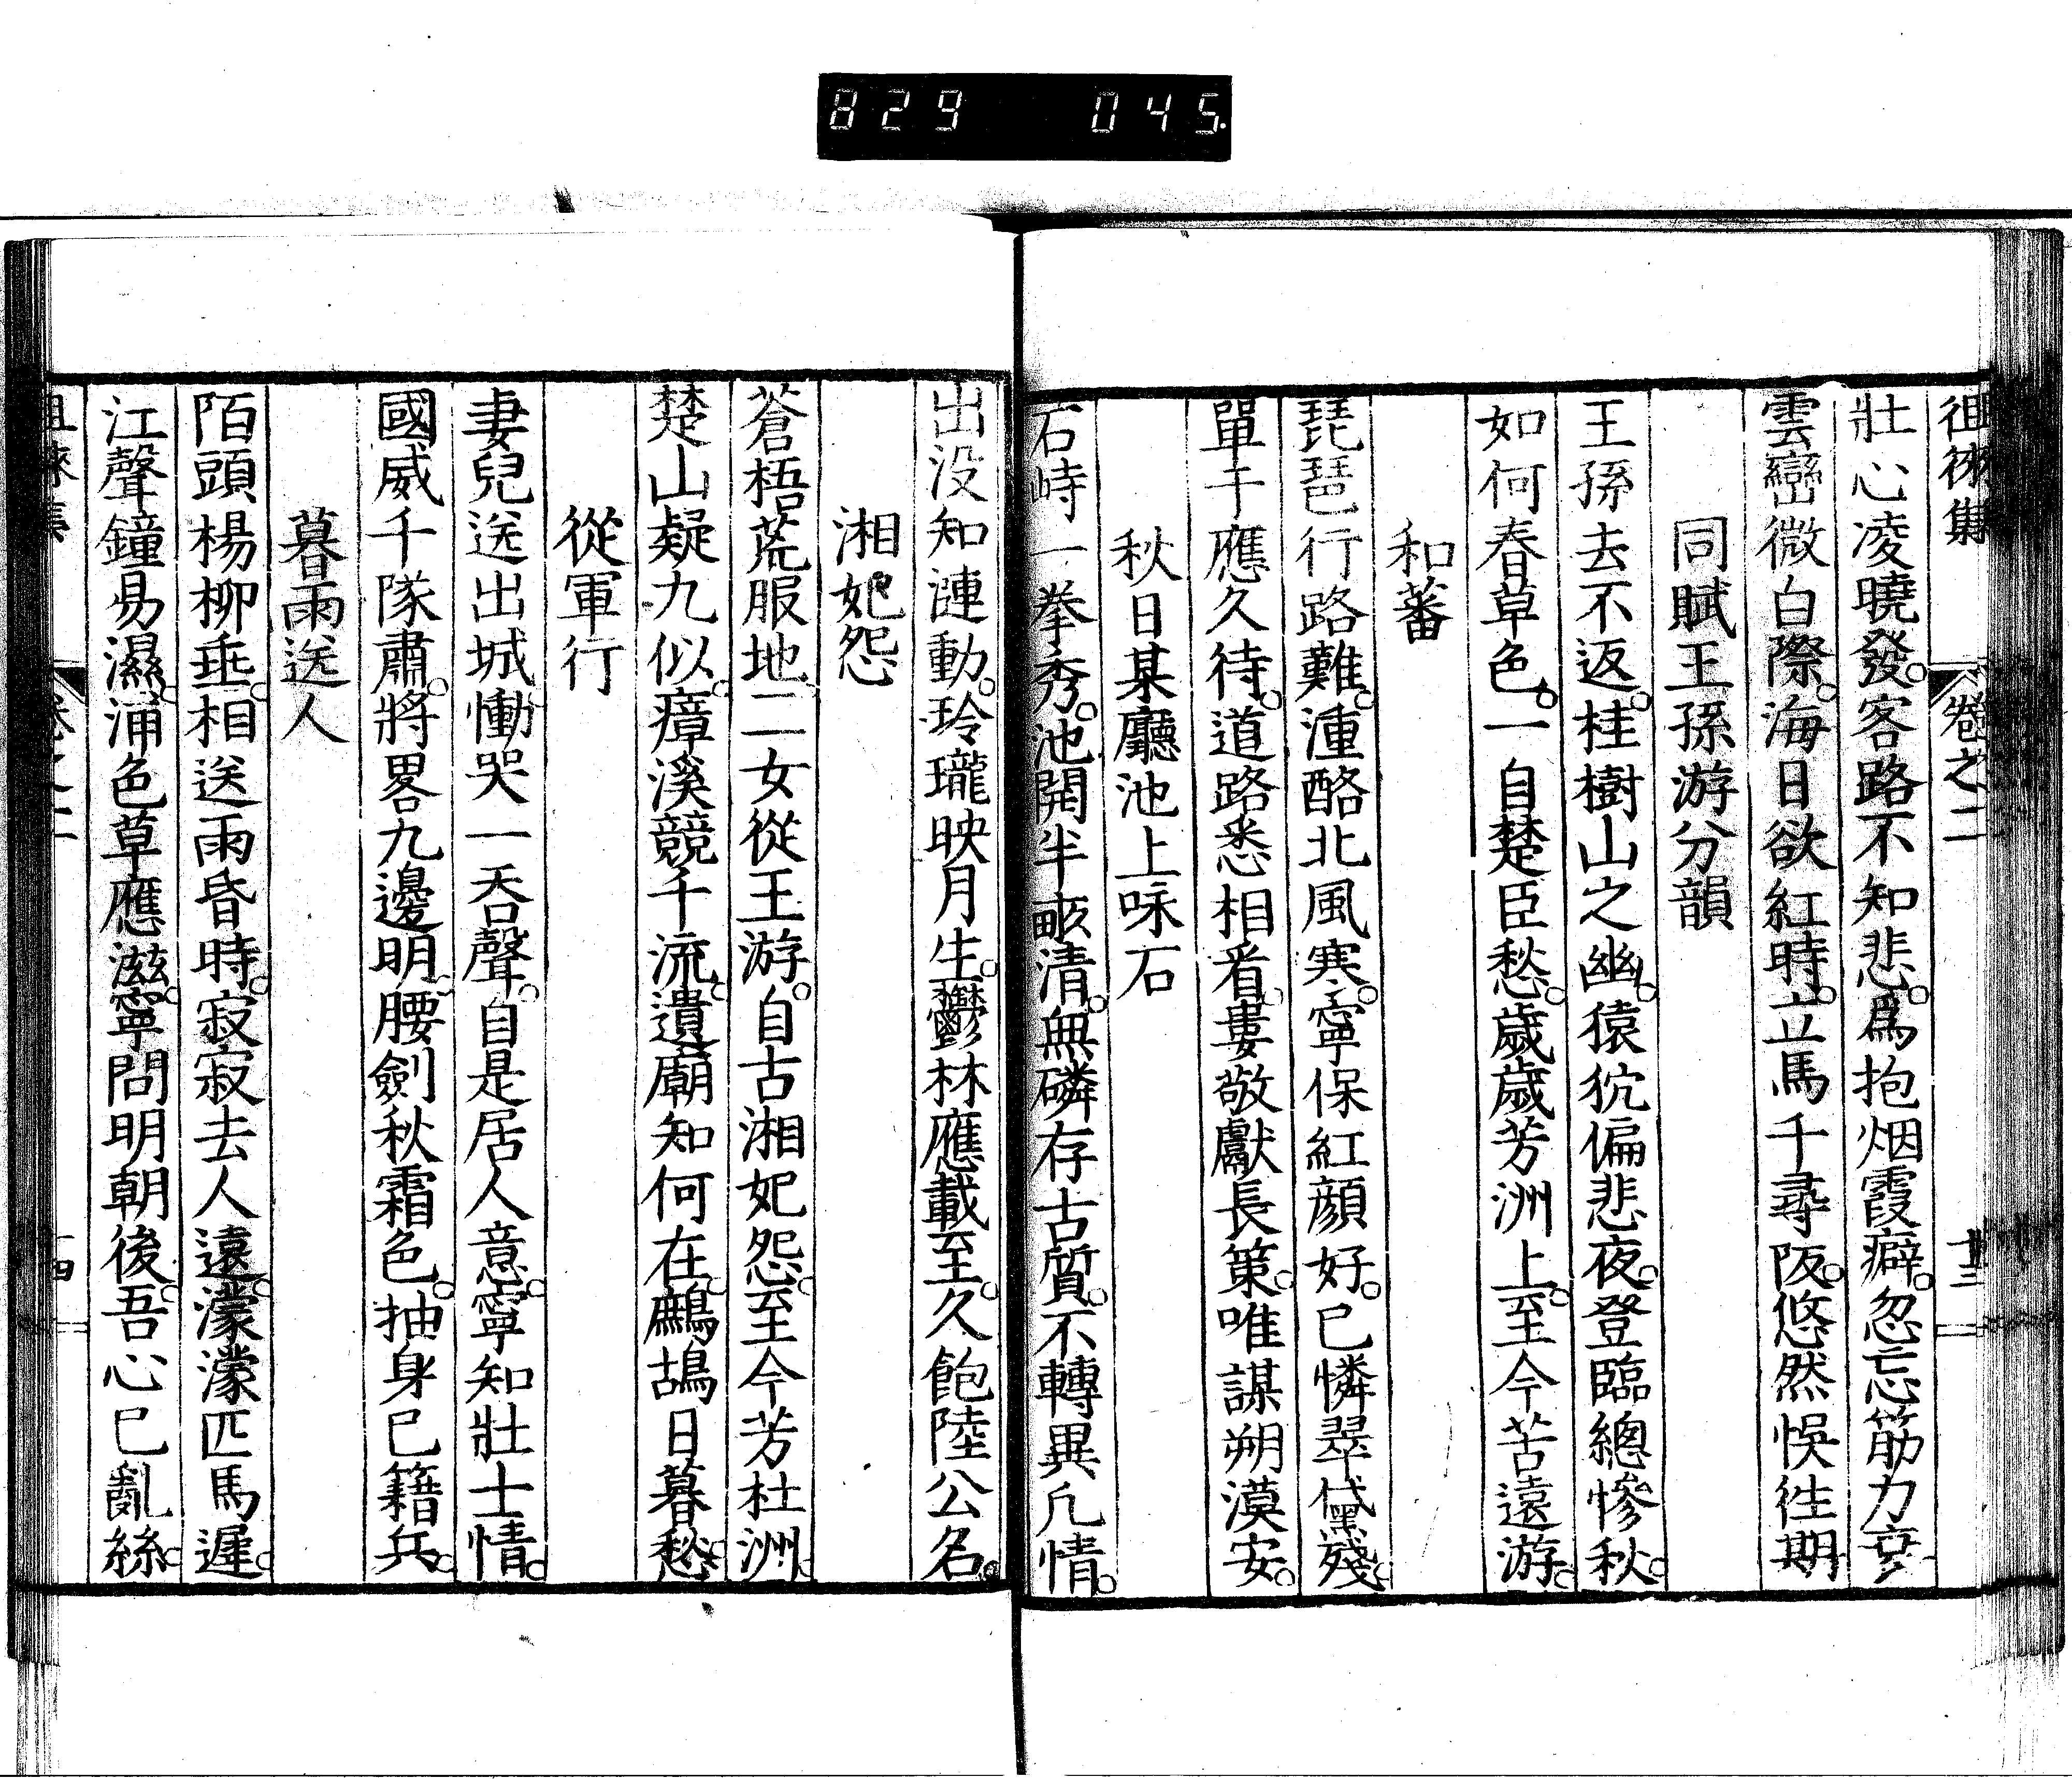 829 045
徂徠集 卷之二 十三
壯心凌曉發。客路不知悲。爲抱烟霞癖。忽忘筋力衰
雲巒微白際。海日欲紅時。立馬千尋阪。悠然悞往期
同賦王孫游分韻
王孫去不返。桂樹山之幽。猿狖偏悲夜。登臨總慘秋。
如何春草色。一自楚臣愁。歲歲芳洲上。至今苦遠游。
和蕃
琵琶行路難。湩酪北風寒。寧保紅顔好。已憐翠黛殘。
單于應久待。道路悉相看。婁敬獻長策。唯謀朔漠安。
秋日某廳池上咏石
石峙一拳秀。池開半畝清。無磷存古質。不轉異凡情。
出没知漣動。玲瓏映月生。鬱林應載至。久飽陸公名。
湘妃怨
蒼梧荒服地。二女從王游。自古湘妃怨。至今芳杜洲。
楚山疑九似。瘴溪競千流。遺廟知何在。鷓鴣日暮愁。
從軍行
妻兒送出城。慟哭一吞聲。自是居人意。寧知壯士情。
國威千隊肅。將畧九邊明。腰劍秋霜色。抽身已籍兵。
暮雨送人
陌頭楊柳垂。相送雨昏時。寂寂去人遠。濛濛匹馬遲。
江聲鐘易濕。浦色草應滋。寧問明朝後。吾心已亂絲。